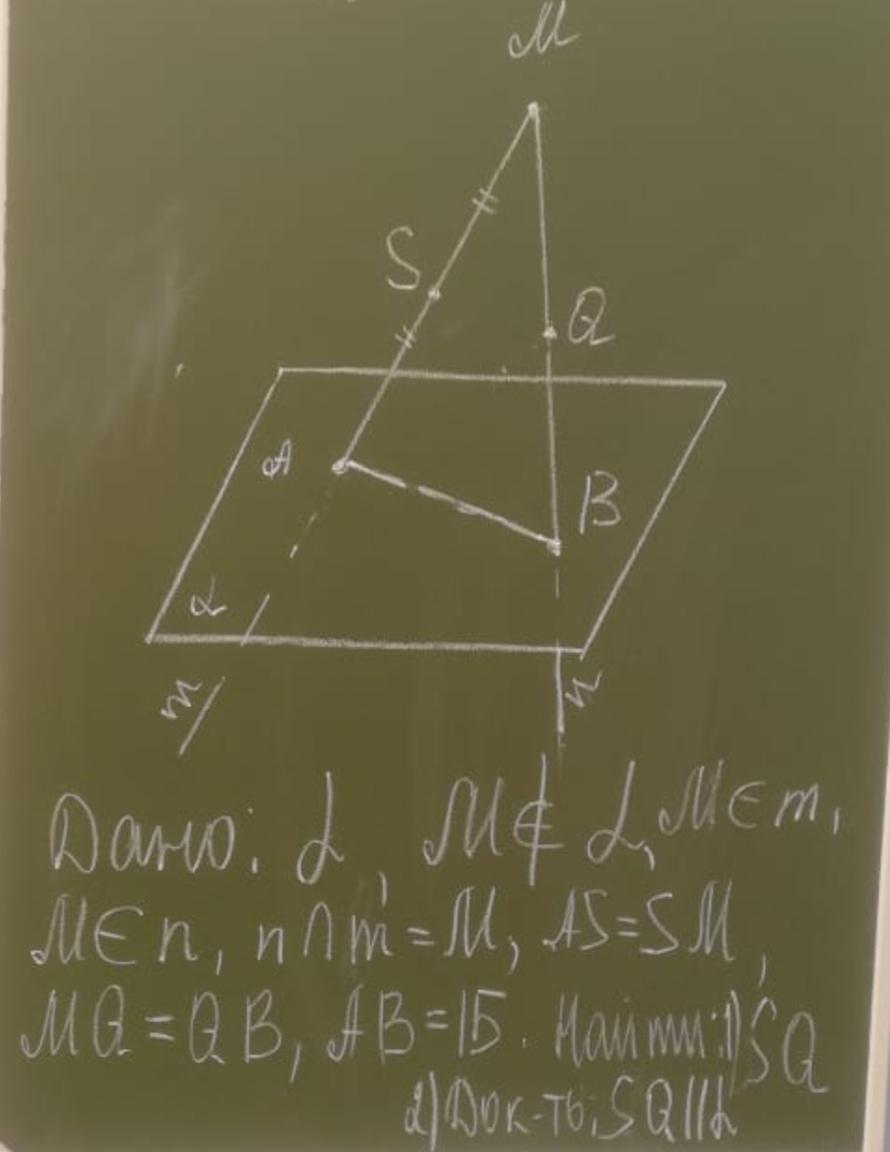 M
S
Q
A
B
α
m
n
Дано: α, M ∉ α, M ∈ m,
M ∈ n, n ∩ m = M, AS = SM,
MQ = QB, AB = 15. Найти: 1) SQ
2) Док-ть: SQ || α